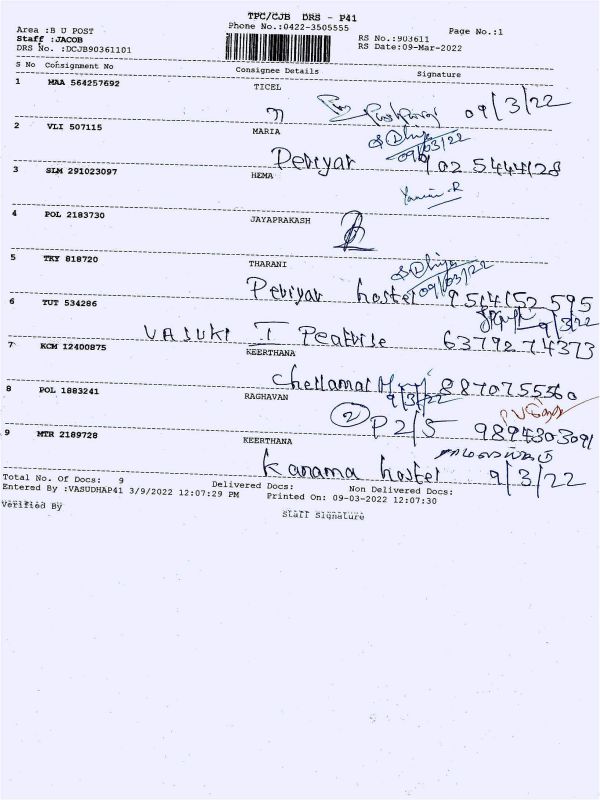 TPC/CJB DRS - P41
Phone No.:0422-3505555
Page No.:1
Area :B U POST
RS No.:903611
Staff :JACOB
RS Date:09-Mar-2022
DRS No. :DCJB90361101
S No Consignment No Consignee Details Signature
1 MAA 564257692 TICEL
09/3/22
2 VLI 507115 MARIA
09/03/22
Periyar 902 5444128
3 SLM 291023097 HEMA
4 POL 2183730 JAYAPRAKASH
5 TKY 818720 THARANI
09/03/22
Periyar hostel 9514152595
6 TUT 534286
9/3/22
VASUKI I 6379274373
7 KCM 12400875 KEERTHANA
8870755560
9/3/22
8 POL 1883241 RAGHAVAN
2 P2/5 9894303091
9 MTR 2189728 KEERTHANA
Kanama hostel 9/3/22
Total No. Of Docs: 9 Delivered Docs: Non Delivered Docs:
Entered By :VASUDHAP41 3/9/2022 12:07:29 PM Printed On: 09-03-2022 12:07:30
Verified By
Staff Signature